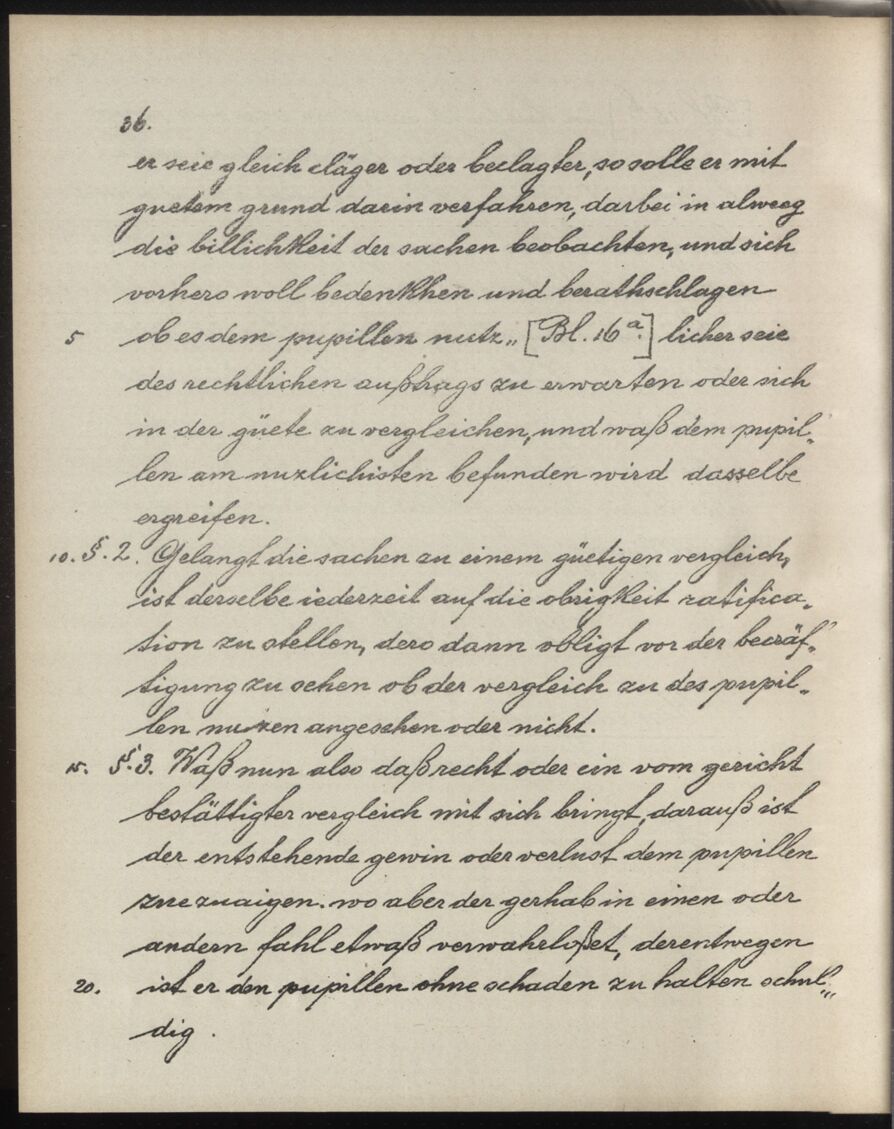 36.
er seie gleich cläger oder beclagter, so solle er mit
guetem grund darin verfahren, darbei in alweeg
die billichkheit der sachen beobachten, und sich
vorhero woll bedenkhen und berathschlagen
5 ob es dem pupillen nutz„ [Bl. 16a.] licher seie
des rechtlichen außtrags zu erwarten oder sich
in der güete zu vergleichen, und waß dem pupil„
len am nuzlichisten befunden wird dasselbe
ergreifen.
10. §. 2. Gelangt die sachen zu einem güetigen vergleich,
ist derselbe iederzeit auf die obrigkheit ratifica„
tion zu stellen, dero dann obligt vor der becräf„
tigung zu sehen ob der vergleich zu des pupil„
len nuzen angesehen oder nicht.
15. §. 3. Waß nun also daß recht oder ein vom gericht
bestättigter vergleich mit sich bringt, darauß ist
der entstehende gewin oder verlust dem pupillen
zuezuaigen. wo aber der gerhab in einen oder
andern fahl etwaß verwahrloßet, derentwegen
20. ist er den pupillen ohne schaden zu halten schul„
dig.